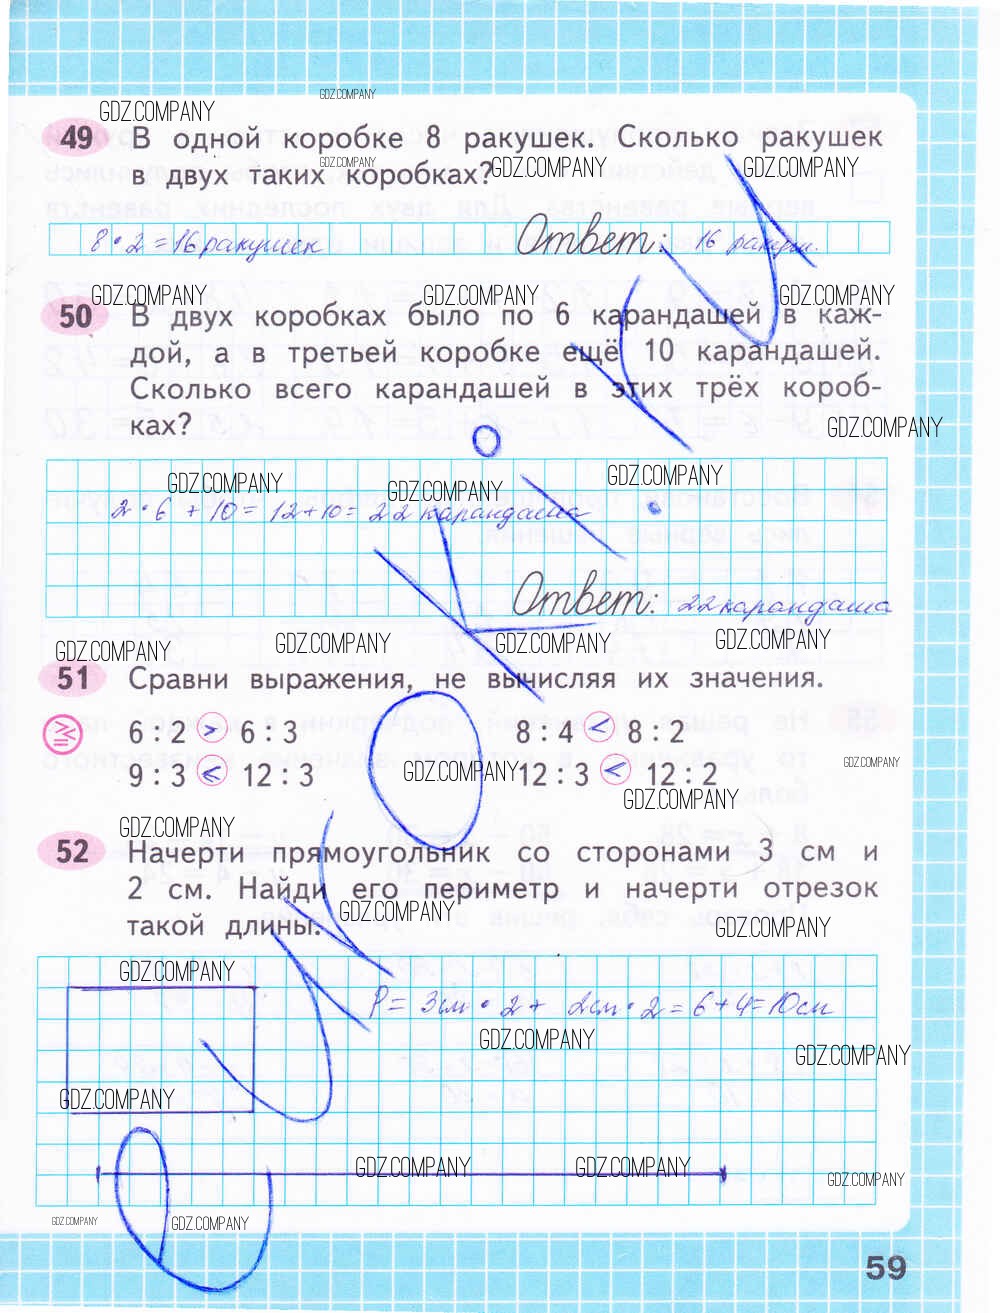 GDZ.COMPANY
GDZ.COMPANY
49 В одной коробке 8 ракушек. Сколько ракушек
GDZ.COMPANY
в двух таких коробках?
GDZ.COMPANY
GDZ.COMPANY
8 · 2 = 16 ракушек Ответ: 16 ракуш.
GDZ.COMPANY GDZ.COMPANY GDZ.COMPANY
50 В двух коробках было по 6 карандашей в каж-
дой, а в третьей коробке ещё 10 карандашей.
Сколько всего карандашей в этих трёх короб-
ках?
GDZ.COMPANY
GDZ.COMPANY GDZ.COMPANY GDZ.COMPANY
2 · 6 + 10 = 12 + 10 = 22 карандаша
Ответ: 22 карандаша
GDZ.COMPANY GDZ.COMPANY GDZ.COMPANY GDZ.COMPANY
51 Сравни выражения, не вычисляя их значения.
6 : 2 > 6 : 3 8 : 4 < 8 : 2
GDZ.COMPANY
9 : 3 < 12 : 3 GDZ.COMPANY 12 : 3 < 12 : 2
GDZ.COMPANY
GDZ.COMPANY
52 Начерти прямоугольник со сторонами 3 см и
2 см. Найди его периметр и начерти отрезок
GDZ.COMPANY
такой длины.
GDZ.COMPANY
GDZ.COMPANY
P = 3см · 2 + 2см · 2 = 6 + 4 = 10см
GDZ.COMPANY
GDZ.COMPANY
GDZ.COMPANY
GDZ.COMPANY GDZ.COMPANY GDZ.COMPANY
GDZ.COMPANY GDZ.COMPANY
59